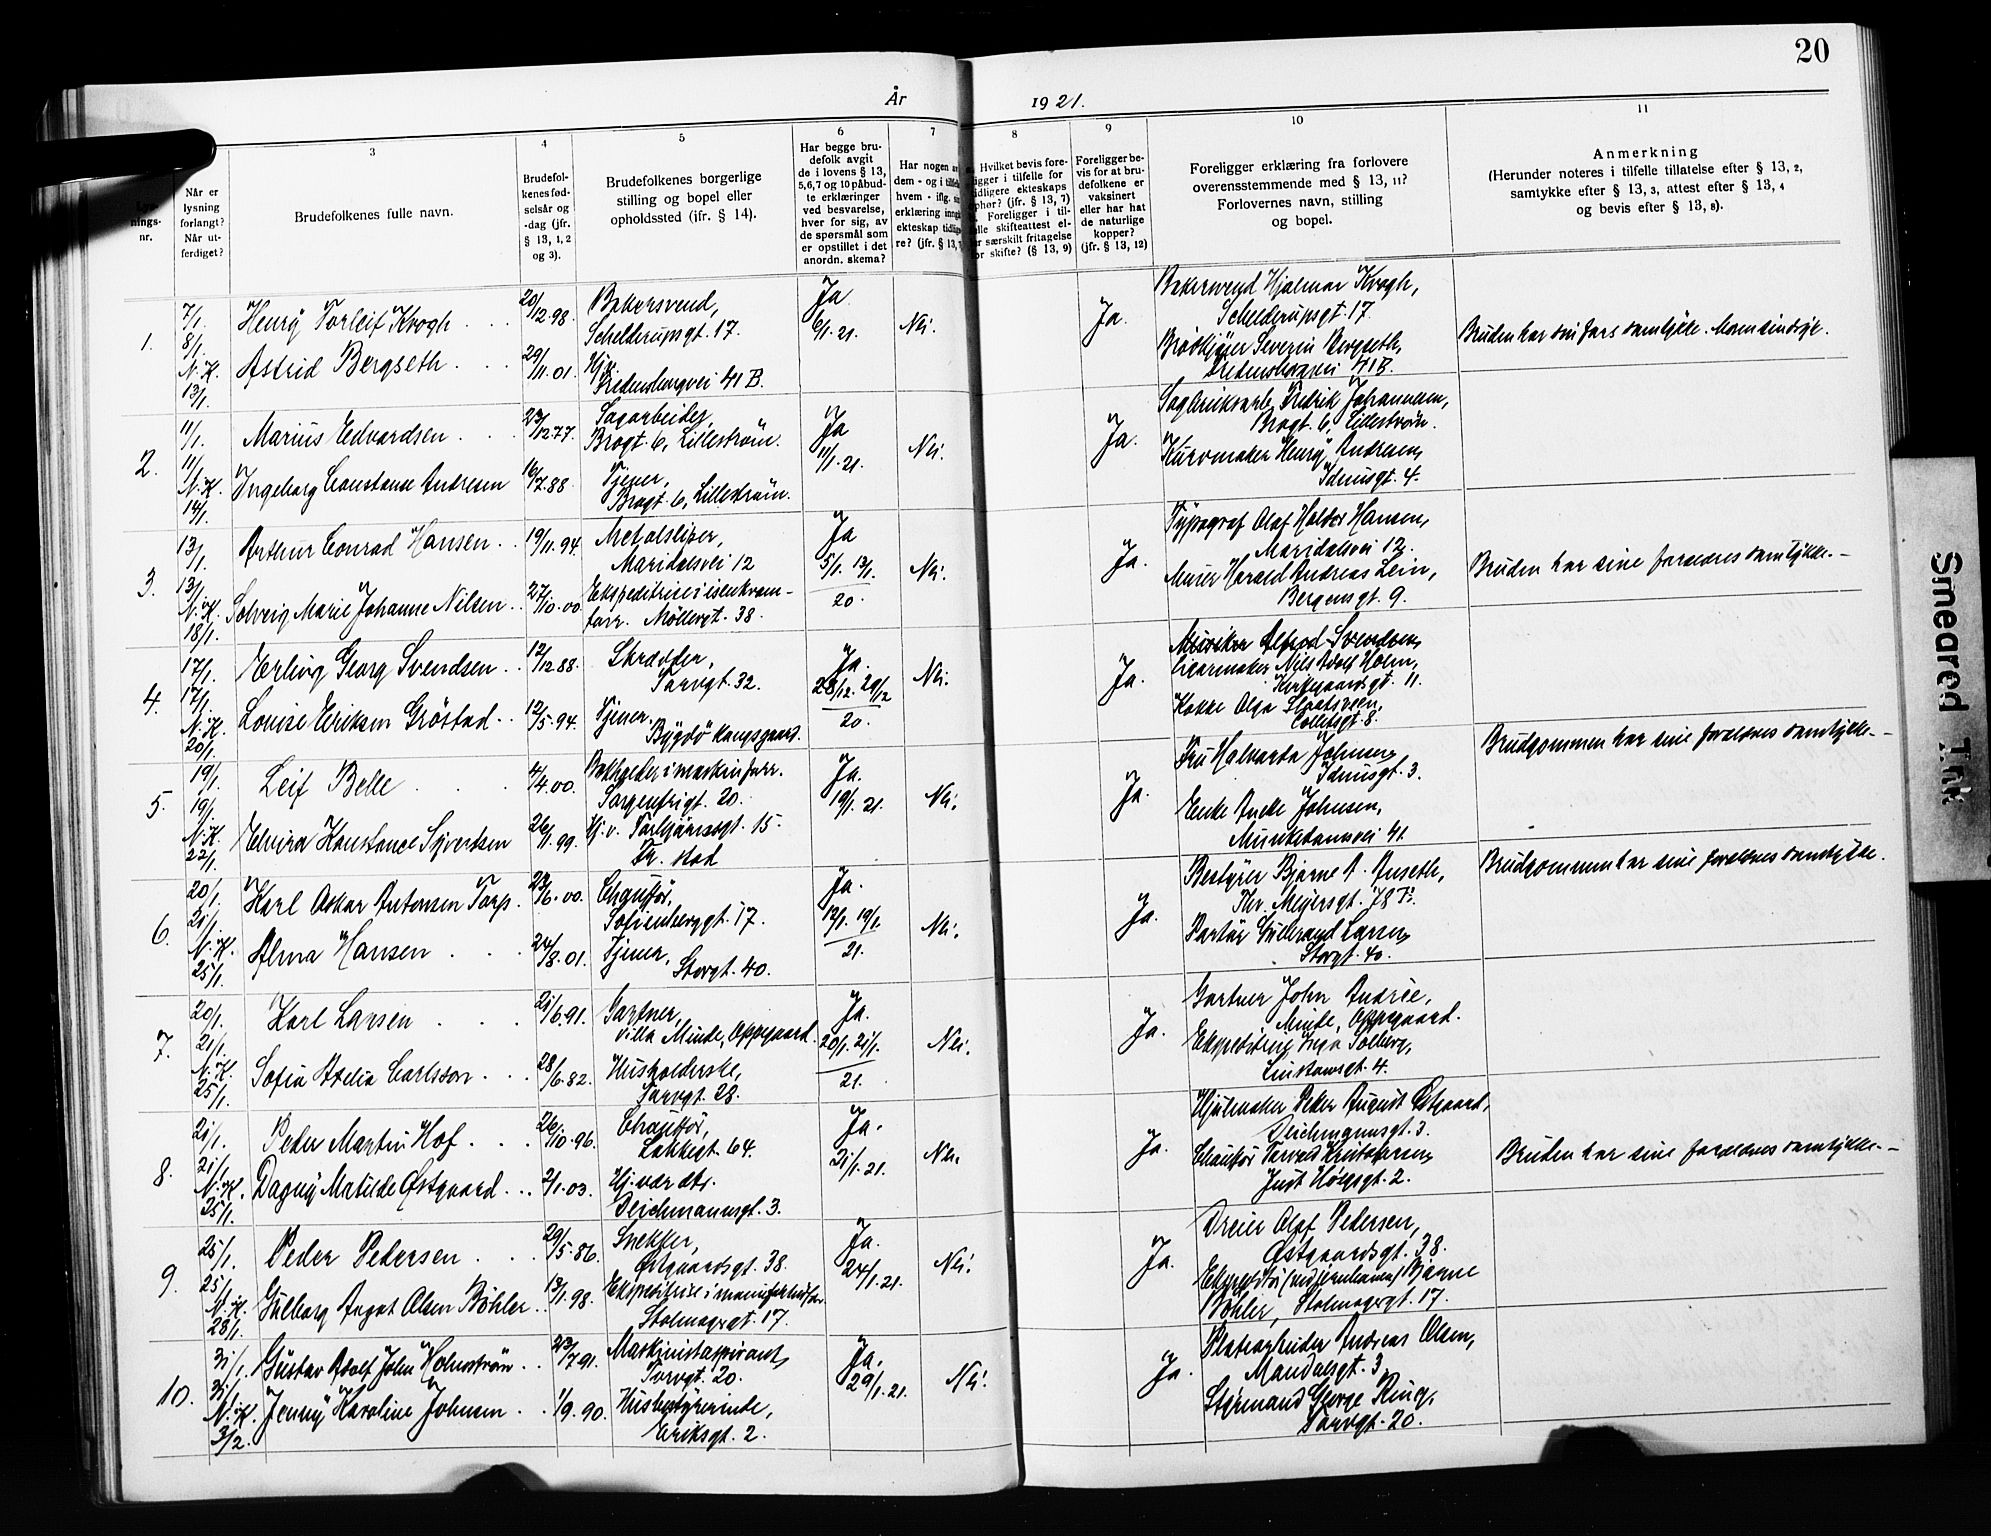 20
År 1921.
3
4
5
6
7
8
9
10
11
nings-
nr.
Når er
lysning
forlangt?
Når ut-
ferdiget?
Brudefolkenes fulle navn.
Brudefol-
kenes fød-
selsår og
-dag (jfr.
§ 13, 1, 2
og 3).
Brudefolkenes borgerlige
stilling og bopel eller
opholdssted (ifr. § 14).
Har begge bru-
defolk avgit
de i lovens § 13,
5,6,7 og 10 påbud-
te erklæringer
ved besvarelse,
hver for sig, av
de spørsmål som
er opstillet i det
anordn. skema?
Har nogen av
dem - og i tilfelle
hvem - iflg. sin
erklæring inngått
ekteskap tidlige-
re? (jfr. § 13,
Hvilket bevis fore-
ligger i tilfelle for
tidligere ekteskaps
ophør? (jfr. § 13, 7)
Foreligger i til-
felle skifteattest el-
ler særskilt fritagelse
for skifte? (§ 13, 9)
Foreligger be-
vis for at bru-
defolkene er
vaksinert
eller har hat
de naturlige
kopper?
(jfr. § 13, 12)
Foreligger erklæring fra forlovere
overensstemmende med § 13, 11?
Forlovernes navn, stilling
og bopel.
Anmerkning
(Herunder noteres i tilfelle tillatelse efter § 13, 2,
samtykke efter § 13, 3, attest efter § 13, 4
og bevis efter § 13, 8).
1.
7/1.
8/1.
N.K.
13/1.
Henry Torleif Krogh
Astrid Bergseth
20/12.98.
29/11.01.
Bakersvend,
Schelderupsgt. 17.
Hj.v.
Fredensborgvei 41 B.
Ja
6/1.21.
Nei.
Ja.
Bakersvend Hjalmar Krogh,
Schelderupsgt. 17.
Brødkjører Severin Bergseth,
Fredensborgvei 41 B.
Bruden har sin fars samtykke. Moren sindssyk.
2.
11/1.
11/1.
N.K.
14/1.
Marius Edvardsen
Ingeborg Constanse Andresen
23/12.77.
16/7.88.
Sagarbeider,
Brogt. 6, Lillestrøm.
Tjener,
Brogt. 6, Lillestrøm.
Ja
11/1.21.
Nei.
Ja.
Fredrik Johannesen,
Brogt. 6, Lillestrøm.
Kurvmaker Henry Andresen,
Idunsgt. 4.
3.
13/1.
13/1.
N.K.
18/1.
Arthur Conrad Hansen
Solveig Marie Johanne Nilsen
19/11.94.
27/10.00.
Metalsliper,
Maridalsvei 12
Ekspeditrise i isenkram-
forr. Møllergt. 38.
Ja
5/1. 13/1.
20.
Nei.
Ja.
Typograf Olaf Halder Hansen,
Maridalsvei 12.
Murer Harald Andreas Lein,
Bergensgt. 9.
Bruden har sine foreldres samtykke.-
4.
17/1.
17/1.
N.K.
20/1.
Erling Georg Svendsen
Louise Eriksen Grøstad
12/12.88.
12/5.94.
Skrædder,
Torvgt. 32.
Tjener,
Bygdø kongsgaard.
Ja.
28/12. 29/12
20.
Nei.
Ja.
Musiker Alfred Svendsen,
Cigarmaker Nils Adolf Holm,
Kirkegaardsgt. 11.
Kokke Olga
Colletsgt. 8.
5.
19/1.
19/1.
N.K.
22/1.
Leif Belle
Elvira Konstance Syvertsen
4/4.00.
26/11.99.
Bokholder i maskinforr.
Sorgenfrigt. 20.
Hj.v. 15.
Fr. stad
Ja.
19/1.21.
Nei.
Ja.
Fru Halvarda Johnsen,
Idunsgt. 3.
Enke Johnsen,
41
Brudgommen har sine foreldres samtykke.-
6.
20/1.
21/1.
N.K.
25/1.
Karl Oskar Antonsen Torp.
Alma Hansen
23/6.00.
24/8.01.
Chauffør,
Sofienberggt. 17.
Tjener,
Storgt. 40.
Ja.
12/1. 19/1.
21.
Nei.
Ja.
Bestyrer Bjarne A. Anseth,
Thv. Meyersgt. 78
Portør Gulbrand Larsen,
Storgt. 40.
Brudgommen har sine foreldres samtykke.
7.
20/1.
21/1.
N.K.
25/1.
Karl Larsen
Sofia Adelia Carlsson
21/6.91.
28/6.82.
Gartner,
Villa Minde, Oppegaard.
Husholderske,
Torvgt. 28.
Ja.
20/1. 21/1.
21.
Nei.
Ja.
Gartner John Andrée,
Minde, Oppegaard.
Ekspeditrise Inga Solberg,
Linstowsgt. 4.
8.
21/1.
21/1.
N.K.
25/1.
Peder Martin Hof
Dagny Matilde Østgaard
26/10.96.
2/1.03.
Chauffør,
Lakkegt. 64.
Hj.vær. dtr.
Deichmannsgt. 3.
Ja.
21/1.21.
Nei.
Ja.
Hjulmaker Peder August Østgaard,
Deichmannsgt. 3.
Chauffør Torvald Kristoffersen,
Just Høegsgt. 2.
Bruden har sine foreldres samtykke.-
9.
25/1.
25/1.
N.K.
28/1.
Peder Pedersen
Gulborg Aagot Olsen Bøhler
29/5.86.
13/1.98.
Snekker,
Østgaardsgt. 38.
Ekspeditrise i
Stolmagergt. 17.
Ja.
24/1.21.
Nei.
Ja.
Dreier Olaf Pedersen,
Østgaardsgt. 38.
Ekspeditør (ved jernbanen) Bjarne
Bøhler, Stolmagergt. 17.
10.
31/1.
31/1.
N.K.
3/2.
Gustav Adolf John Holmstrøm
Jenny Karoline Johnsen
23/7.91.
1/9.90.
Maskinistaspirant,
Torvgt. 20.
Husbestyrerinde,
Eriksgt. 2.
Ja.
29/1.21.
Nei.
Ja.
Platearbeider Andreas Olsen,
Mandalsgt. 3.
Styrmand George Ring,
Torvgt. 20.
Smeared Ink